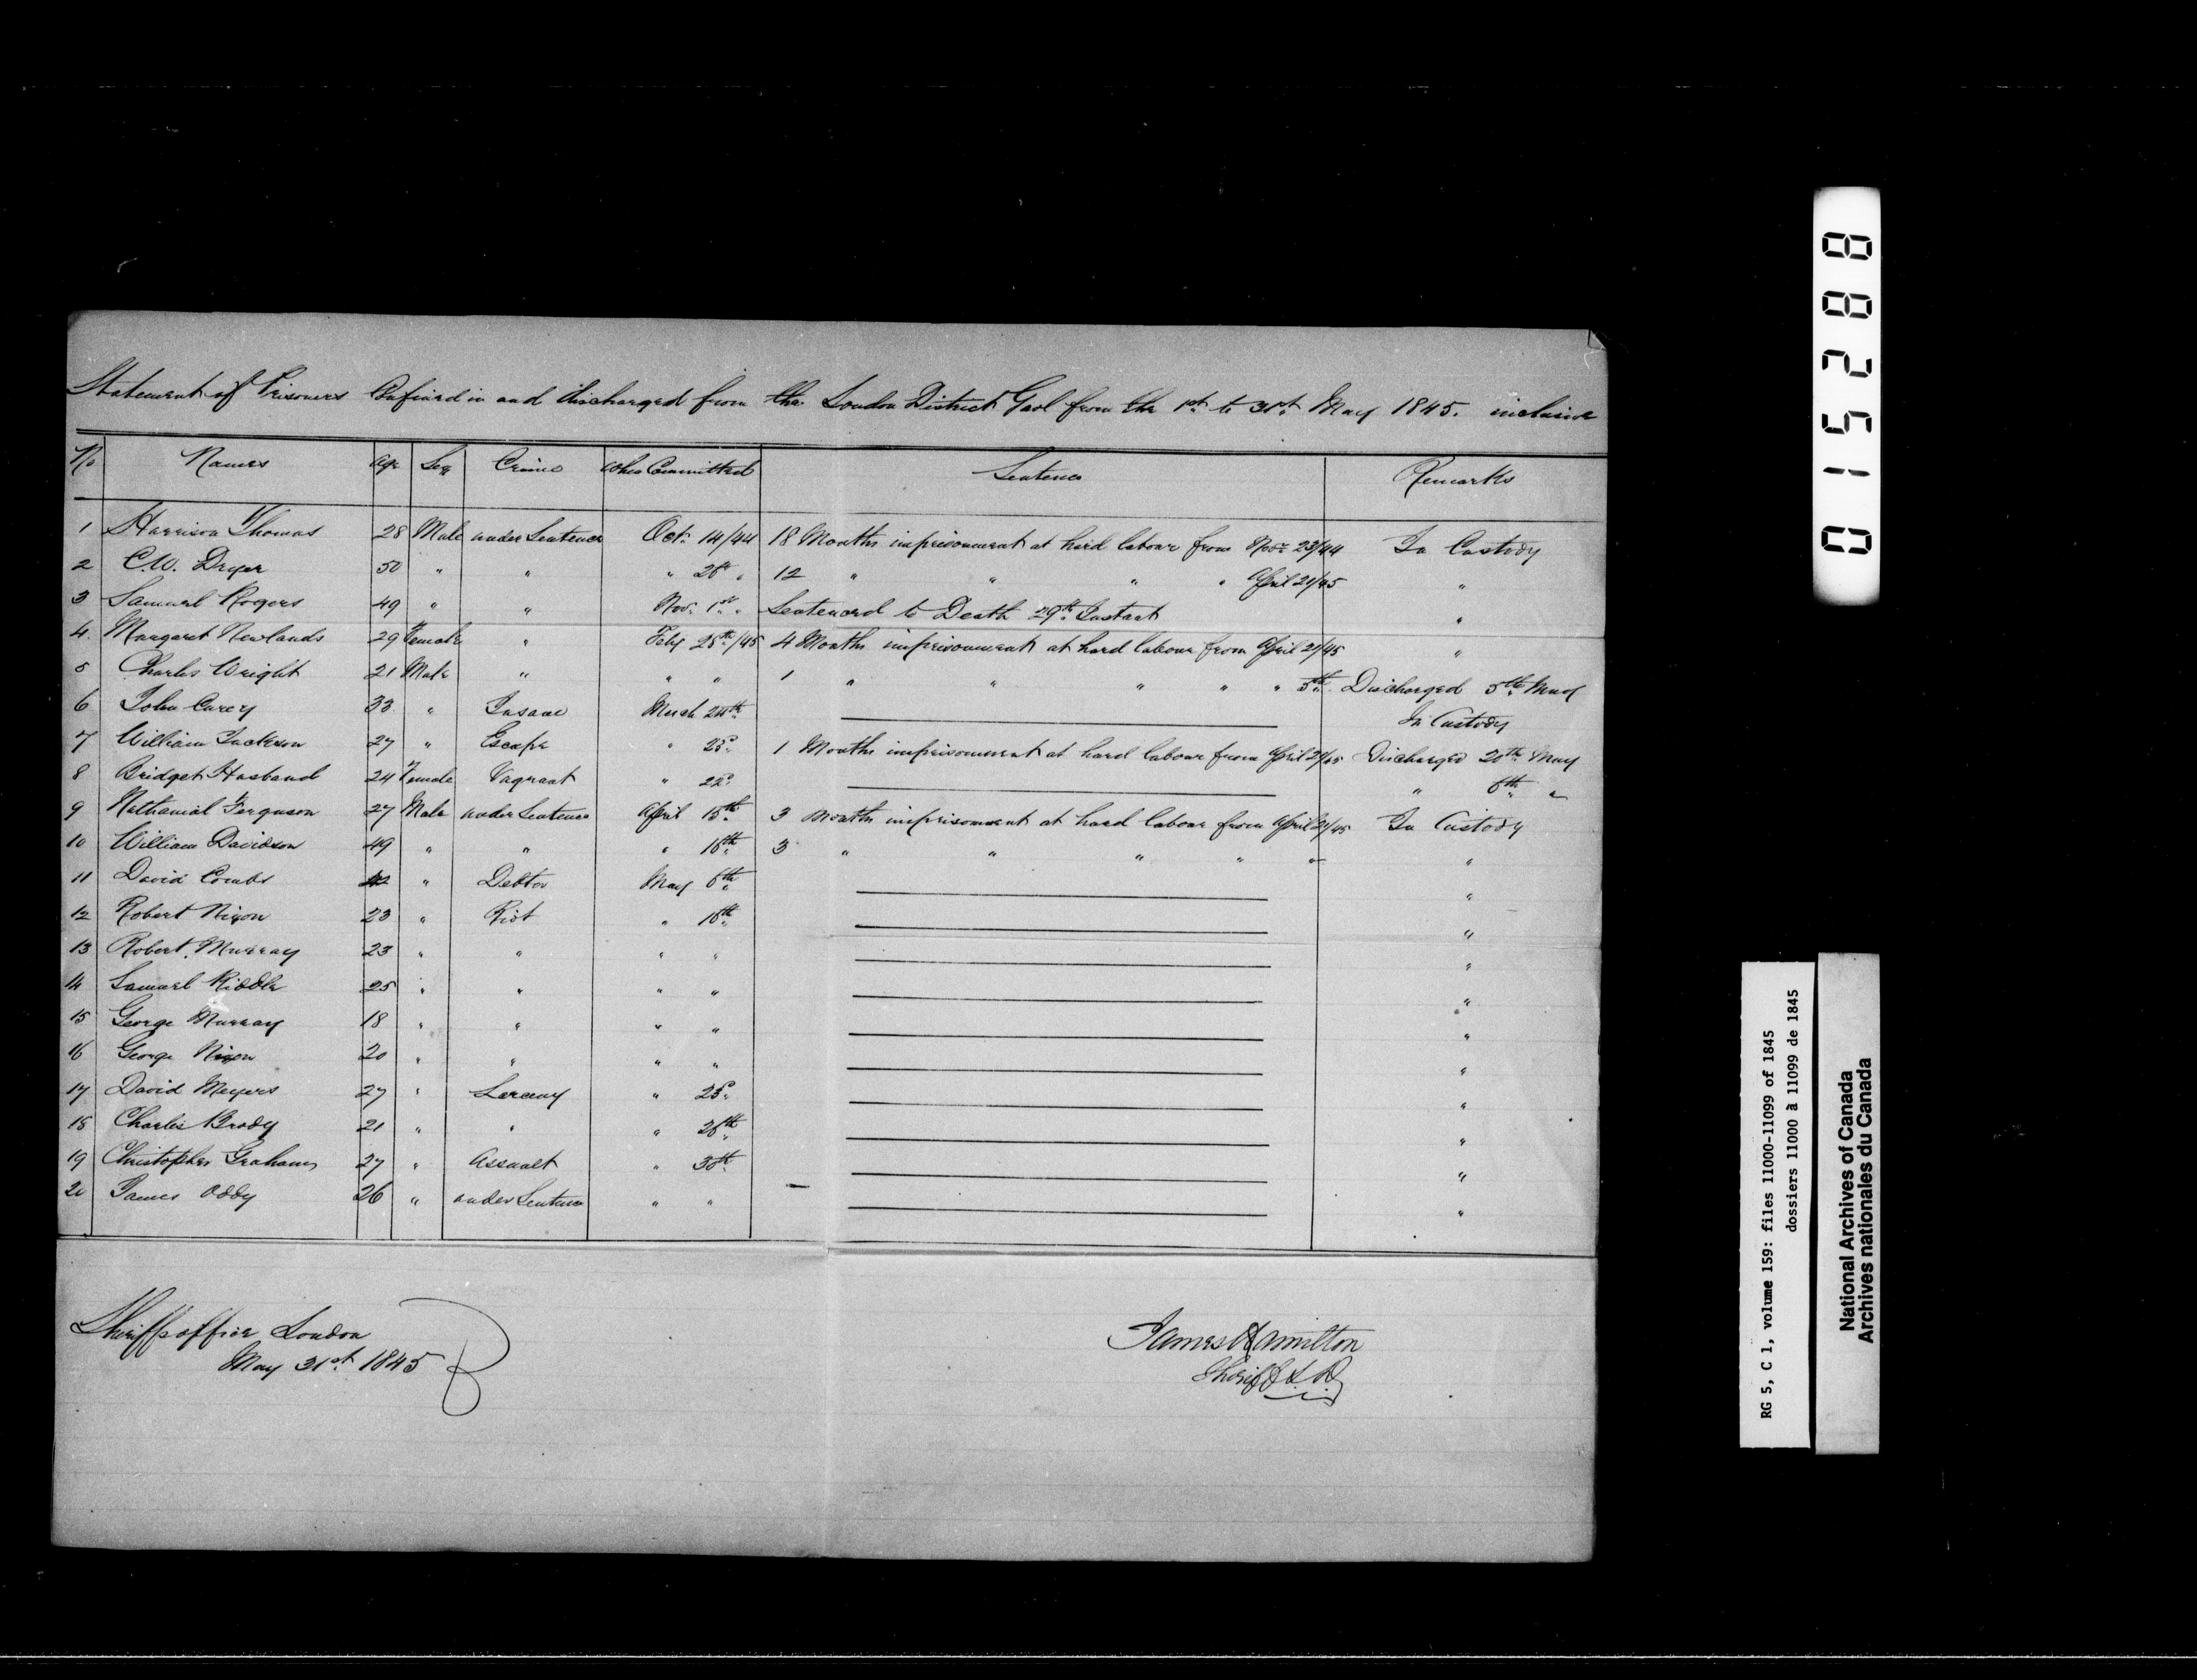 Statement of Prisoners Confined in and discharged from the London District Gaol from the 1st to 31st May 1845. inclusive
No Names Age Sex Crime When Committed Sentence Remarks
1 Harrison Thomas 28 Male under Sentence Oct. 14/44 18 Months imprisonment at hard labour from Novr 23/44 In Custody
2 C.W. Dryer 50 " " " 26th " 12 " " " " April 21/45 "
3 Samuel Rogers 49 " " Nov. 1st " Sentenced to Death 29th Instant "
4. Margaret Newlands 29 Female " Feby 25th/45 4 Months imprisonment at hard labour from April 21/45 "
5 Charles Wright 21 Male " " " 1 " " " " " 5th Discharged 5th May
6 John Carey 33 " Insane March 24th In Custody
7 William Jackson 27 " Escape " 25th 1 Months imprisonment at hard labour from April 21/45 Discharged 20th May
8 Bridget Hasband 24 Female Vagrant " 22d " 6th "
9 Nathanial Ferguson 27 Male under Sentence April 15th 3 Months imprisonment at hard labour from April 21/45 In Custody
10 William Davidson 49 " " " 16th 3 " " " " " "
11 David Combs 42 " Debtor May 6th "
12 Robert Nixon 23 " Riot " 16th "
13 Robert Murray 23 " " " " "
14 Samuel Riddle 25 " " " " "
15 George Murray 18 " " " " "
16 George Nixon 20 " " " " "
17 David Meyers 27 " Larceny " 23d "
18 Charles Brody 21 " " " 26th "
19 Christopher Graham 27 " Assualt " 30th "
20 James Oddy 26 " under Sentence " " "
Sheriffs office London
May 31st 1845
James Hamilton
Sheriff L.D.
015288
RG 5, C 1, volume 159: files 11000-11099 of 1845
dossiers 11000 à 11099 de 1845
National Archives of Canada
Archives nationales du Canada